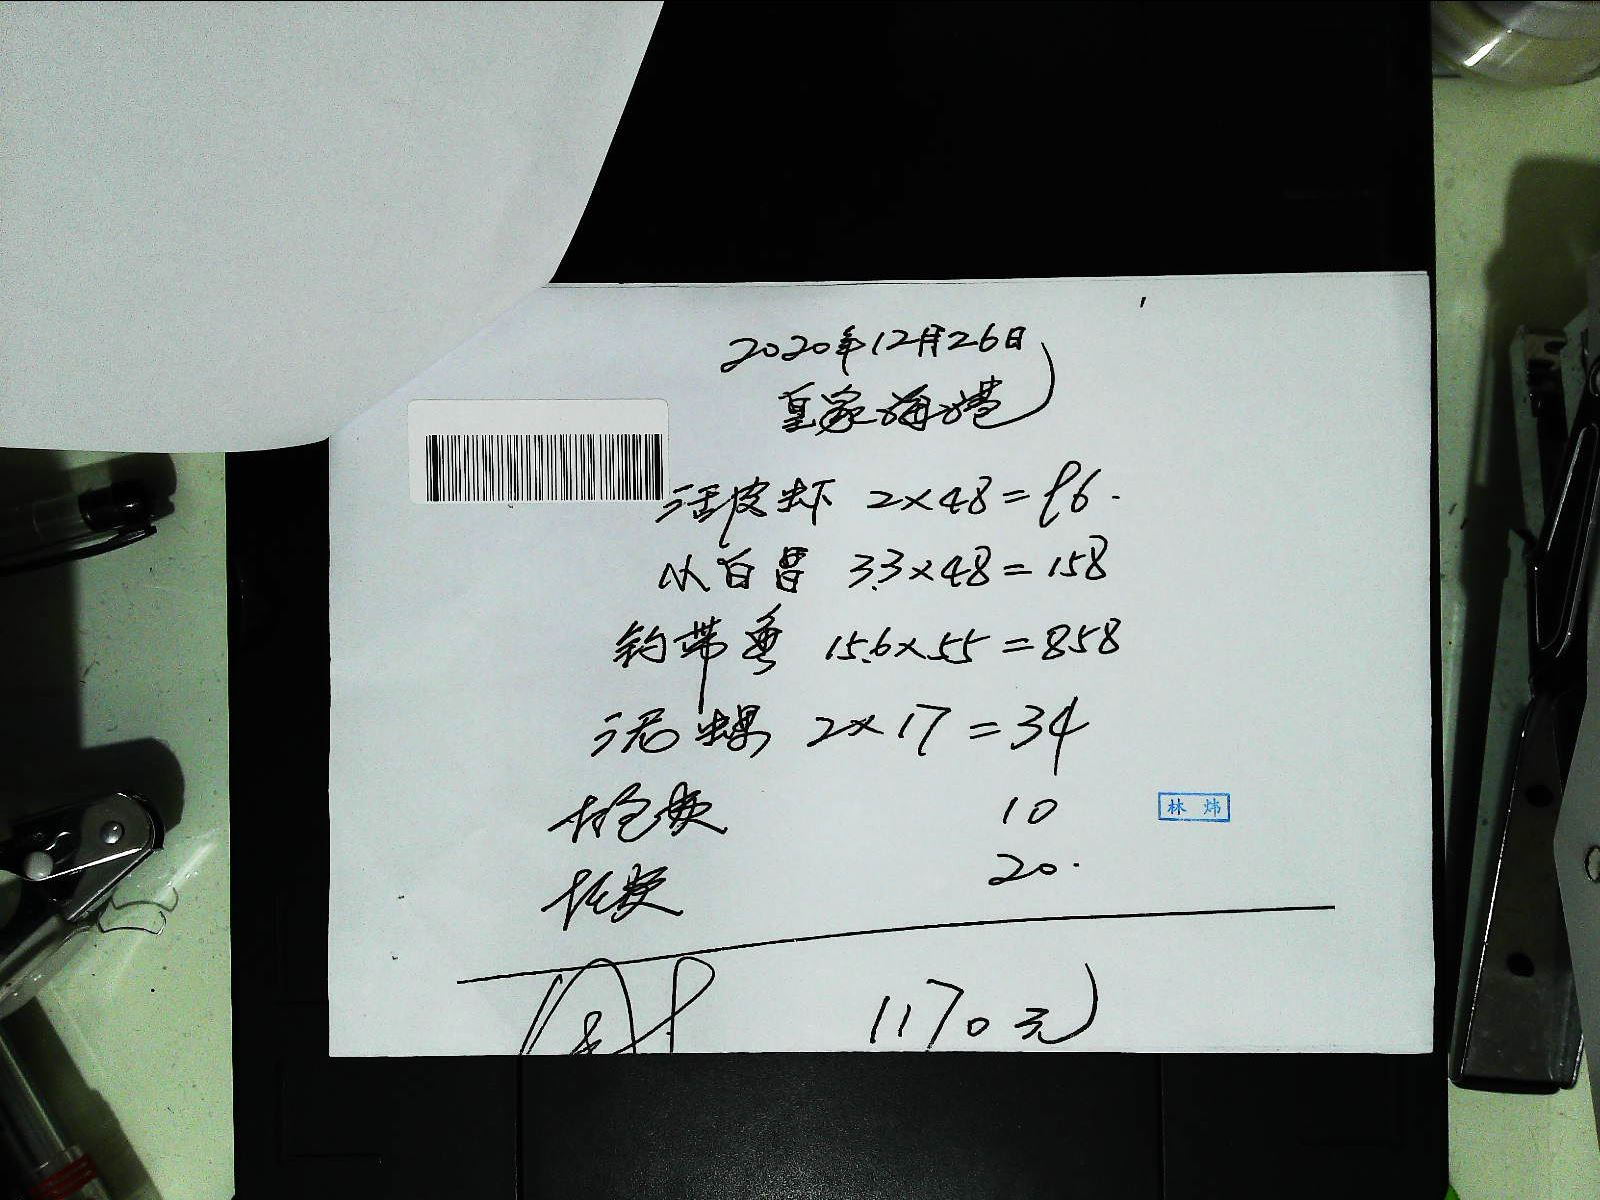 2020年12月26日
皇家海港
活皮虾 2×48=96.
从白昌 3.3×48=158
钓带鱼 15.6×55=858
泥螺 2×17=34
10
林 炜
20.
1170元